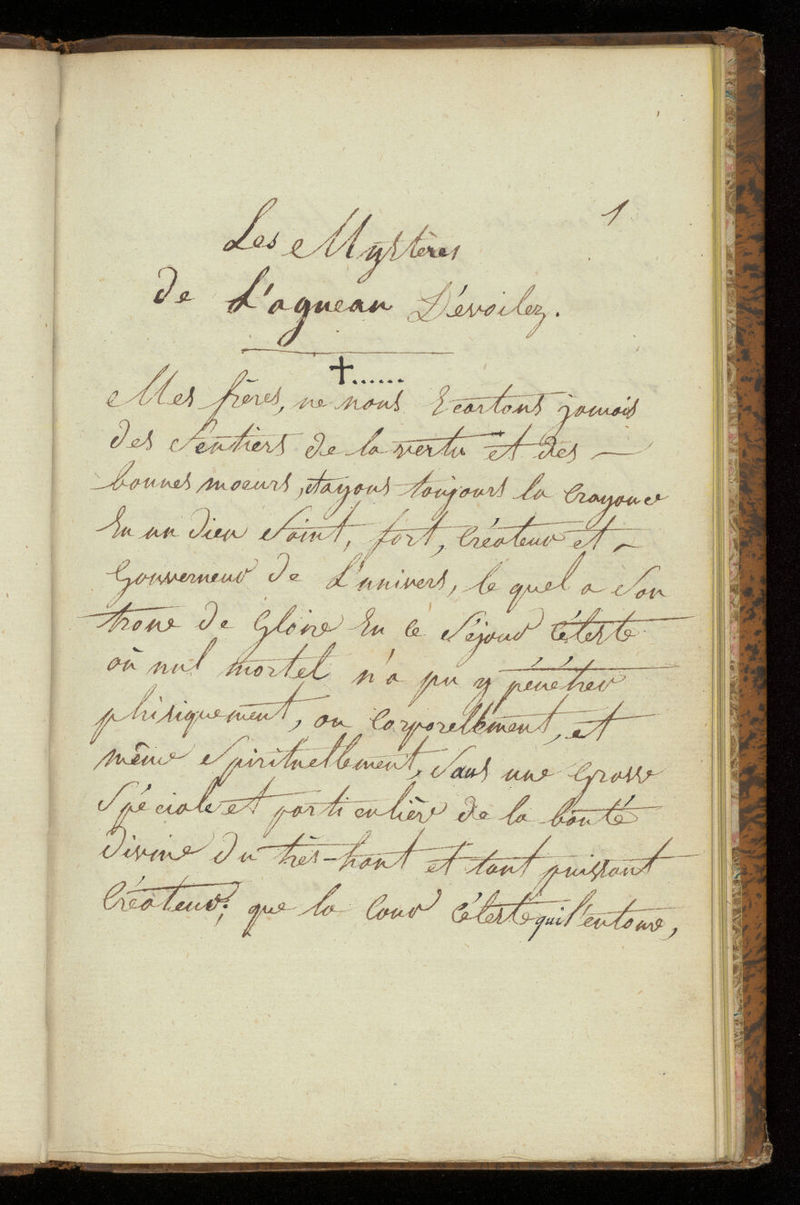 1
Les Mystères
de L'agneau Dévoilez.
†......
Mes frères, ne nous Ecartons jamais
des Sentiers de la vertu et des —
bonnes moeurs, étayons toujours la Crayance
En un Dieu Saint, fort, Créateur et —
Gouverneur de L'univers, le quel a Son
trone de Gloire En ce Séjour Céleste
où nul mortel n'a pu y pénétrer
phisiquement, ou Corporellement, et
même Spirituellement, Sans une Grasse
Spéciale et particulière de la bonté
Divine du très-haut et tout puissant
Créateur; que la Cour Céleste qui l'entoure,